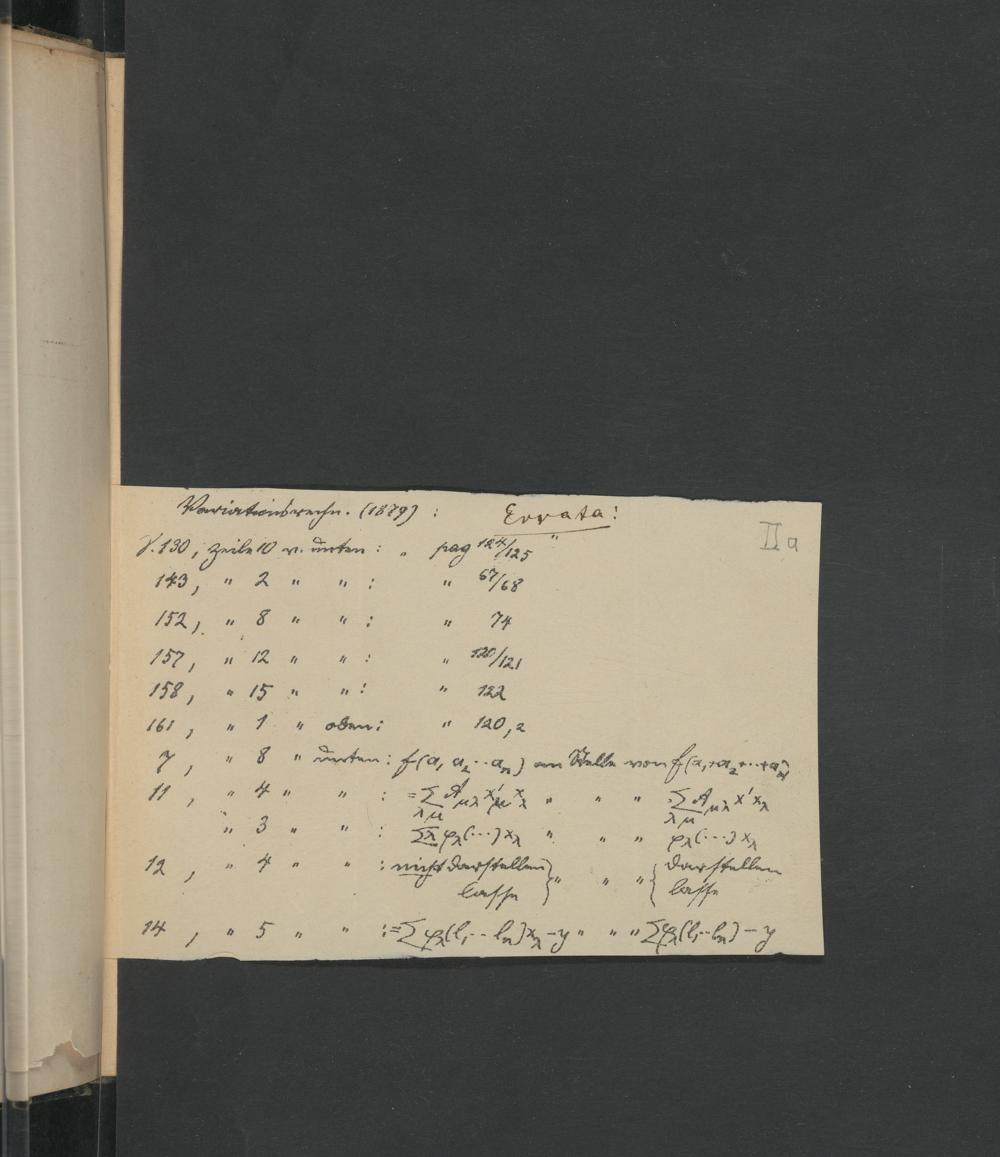 Variationsrechn. (1879) : Errata!
IIa
S. 130, Zeile 10 v. unten : „ pag 124/125 "
143, " 2 " " : " 67/68
152, " 8 " " : " 74
157, " 12 " " : " 120/121
158, " 15 " " : " 122
161, " 1 " oben : " 120,2
7, " 8 " unten : f(a, a₂ ‥ aₙ) an Stelle von f(a₁+a₂+‥+aₙ)
11, " 4 " " : =∑ A_μλ x'_μ x_λ " " " ∑ A_μλ x' x_λ
λ μ λ μ
" 3 " " : ∑λ φ_λ(···) x_λ " " " φ_λ(···) x_λ
12, " 4 " " : nicht darstellen } " " " { darstellen
lasse lasse
14, " 5 " " : =∑ φ_λ(l₁ ‥ lₙ) x_λ − y " " " ∑ φ_λ(l₁ ‥ lₙ) − y